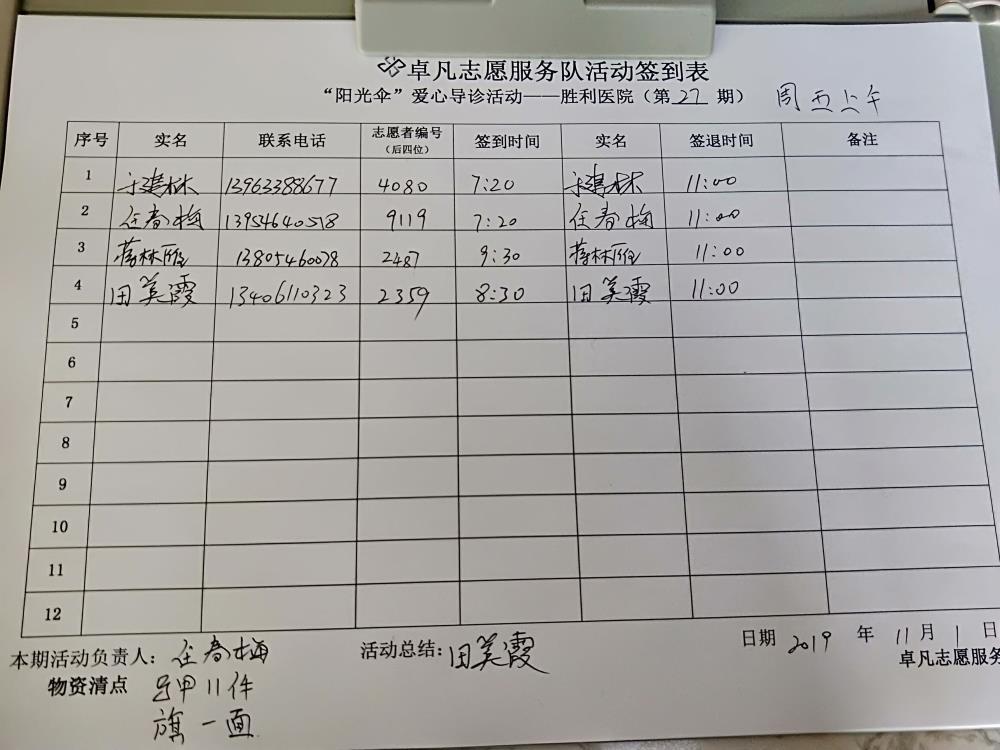 卓凡志愿服务队活动签到表
“阳光伞”爱心导诊活动——胜利医院（第27期） 周五上午
序号 实名 联系电话 志愿者编号（后四位） 签到时间 实名 签退时间 备注
1 于建林 13963388677 4080 7:20 于建林 11:00
2 任春梅 13954640518 9119 7:20 任春梅 11:00
3 蒋林雁 13805460078 2487 9:30 蒋林雁 11:00
4 田美霞 13406110323 2359 8:30 田美霞 11:00
5
6
7
8
9
10
11
12
本期活动负责人：任春梅 活动总结：田美霞 日期 2019 年 11月 1 日
物资清点 马甲11件 卓凡志愿服务
旗一面